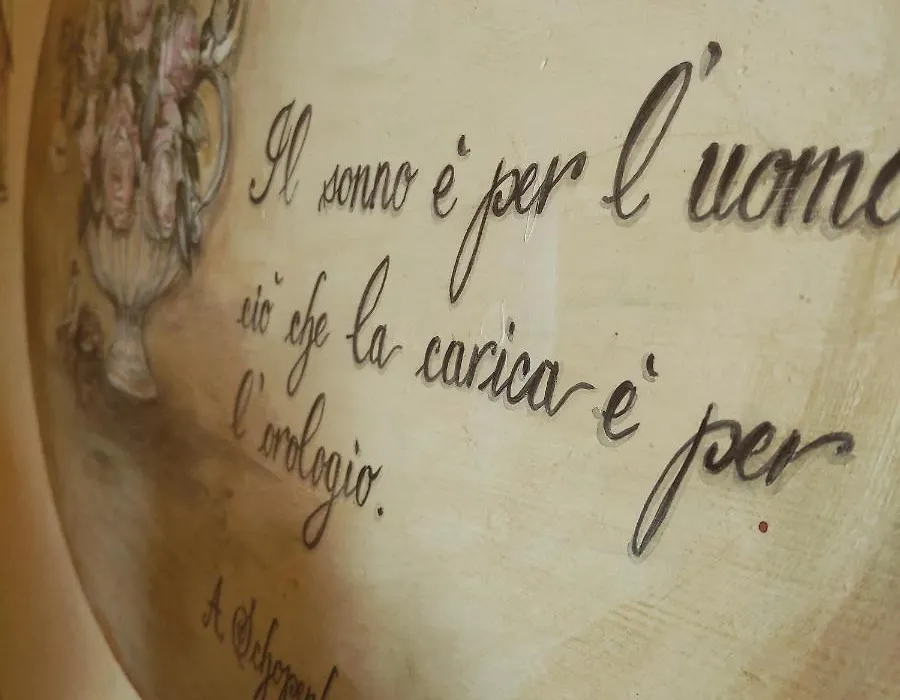 Il sonno è per l'uomo
ciò che la carica è per
l'orologio.
A. Schopenh